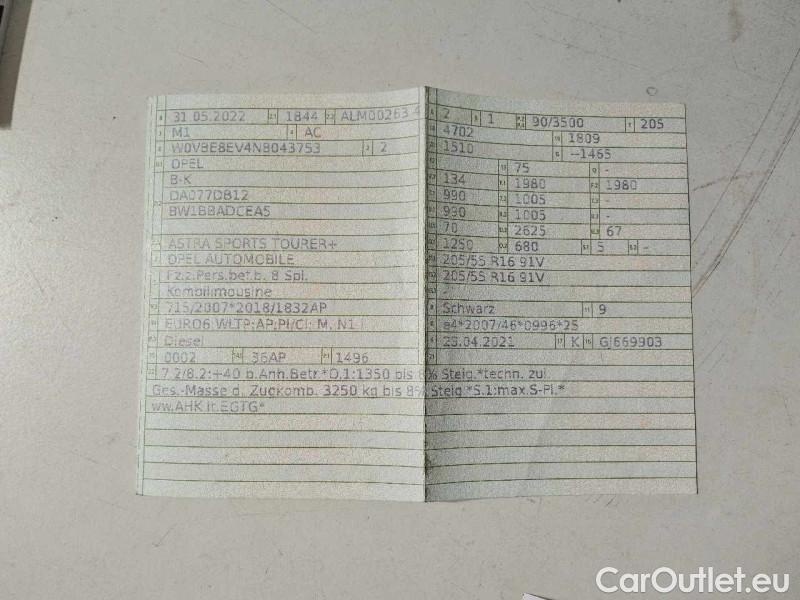 31.05.2022 1844 ALM00263 4
M1 AC
W0VBE8EV4N8043753 2
OPEL
B-K
DA077DB12
BW1BBADCEA5
ASTRA SPORTS TOURER+
OPEL AUTOMOBILE
Fz.z.Pers.bef.b. 8 Spl.
Kombilimousine
715/2007*2018/1832AP
EURO6;WLTP;AP;PI/CI; M, N1 I
Diesel
0002 36AP 1496
2 1 90/3500 205
4702 1809
1510 --1465
75 -
134 1980 1980
990 1005 -
990 1005 -
70 2625 67
1250 680 5 -
205/55 R16 91V
205/55 R16 91V
-
Schwarz 9
e4*2007/46*0996*25
23.04.2021 K GJ669903
7.2/8.2:+40 b.Anh.Betr.*O.1:1350 bis 8% Steig.*techn. zul.
Ges.-Masse d. Zugkomb. 3250 kg bis 8% Steig.*S.1:max.S-Pl.*
ww.AHK lt.EGTG*
CarOutlet.eu